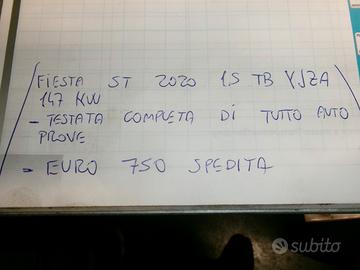 FIESTA ST 2020 1.5 TB YJZA
147 KW
- TESTATA COMPLETA DI TUTTO ANTO
PROVE
- EURO 750 SPEDITA
subito